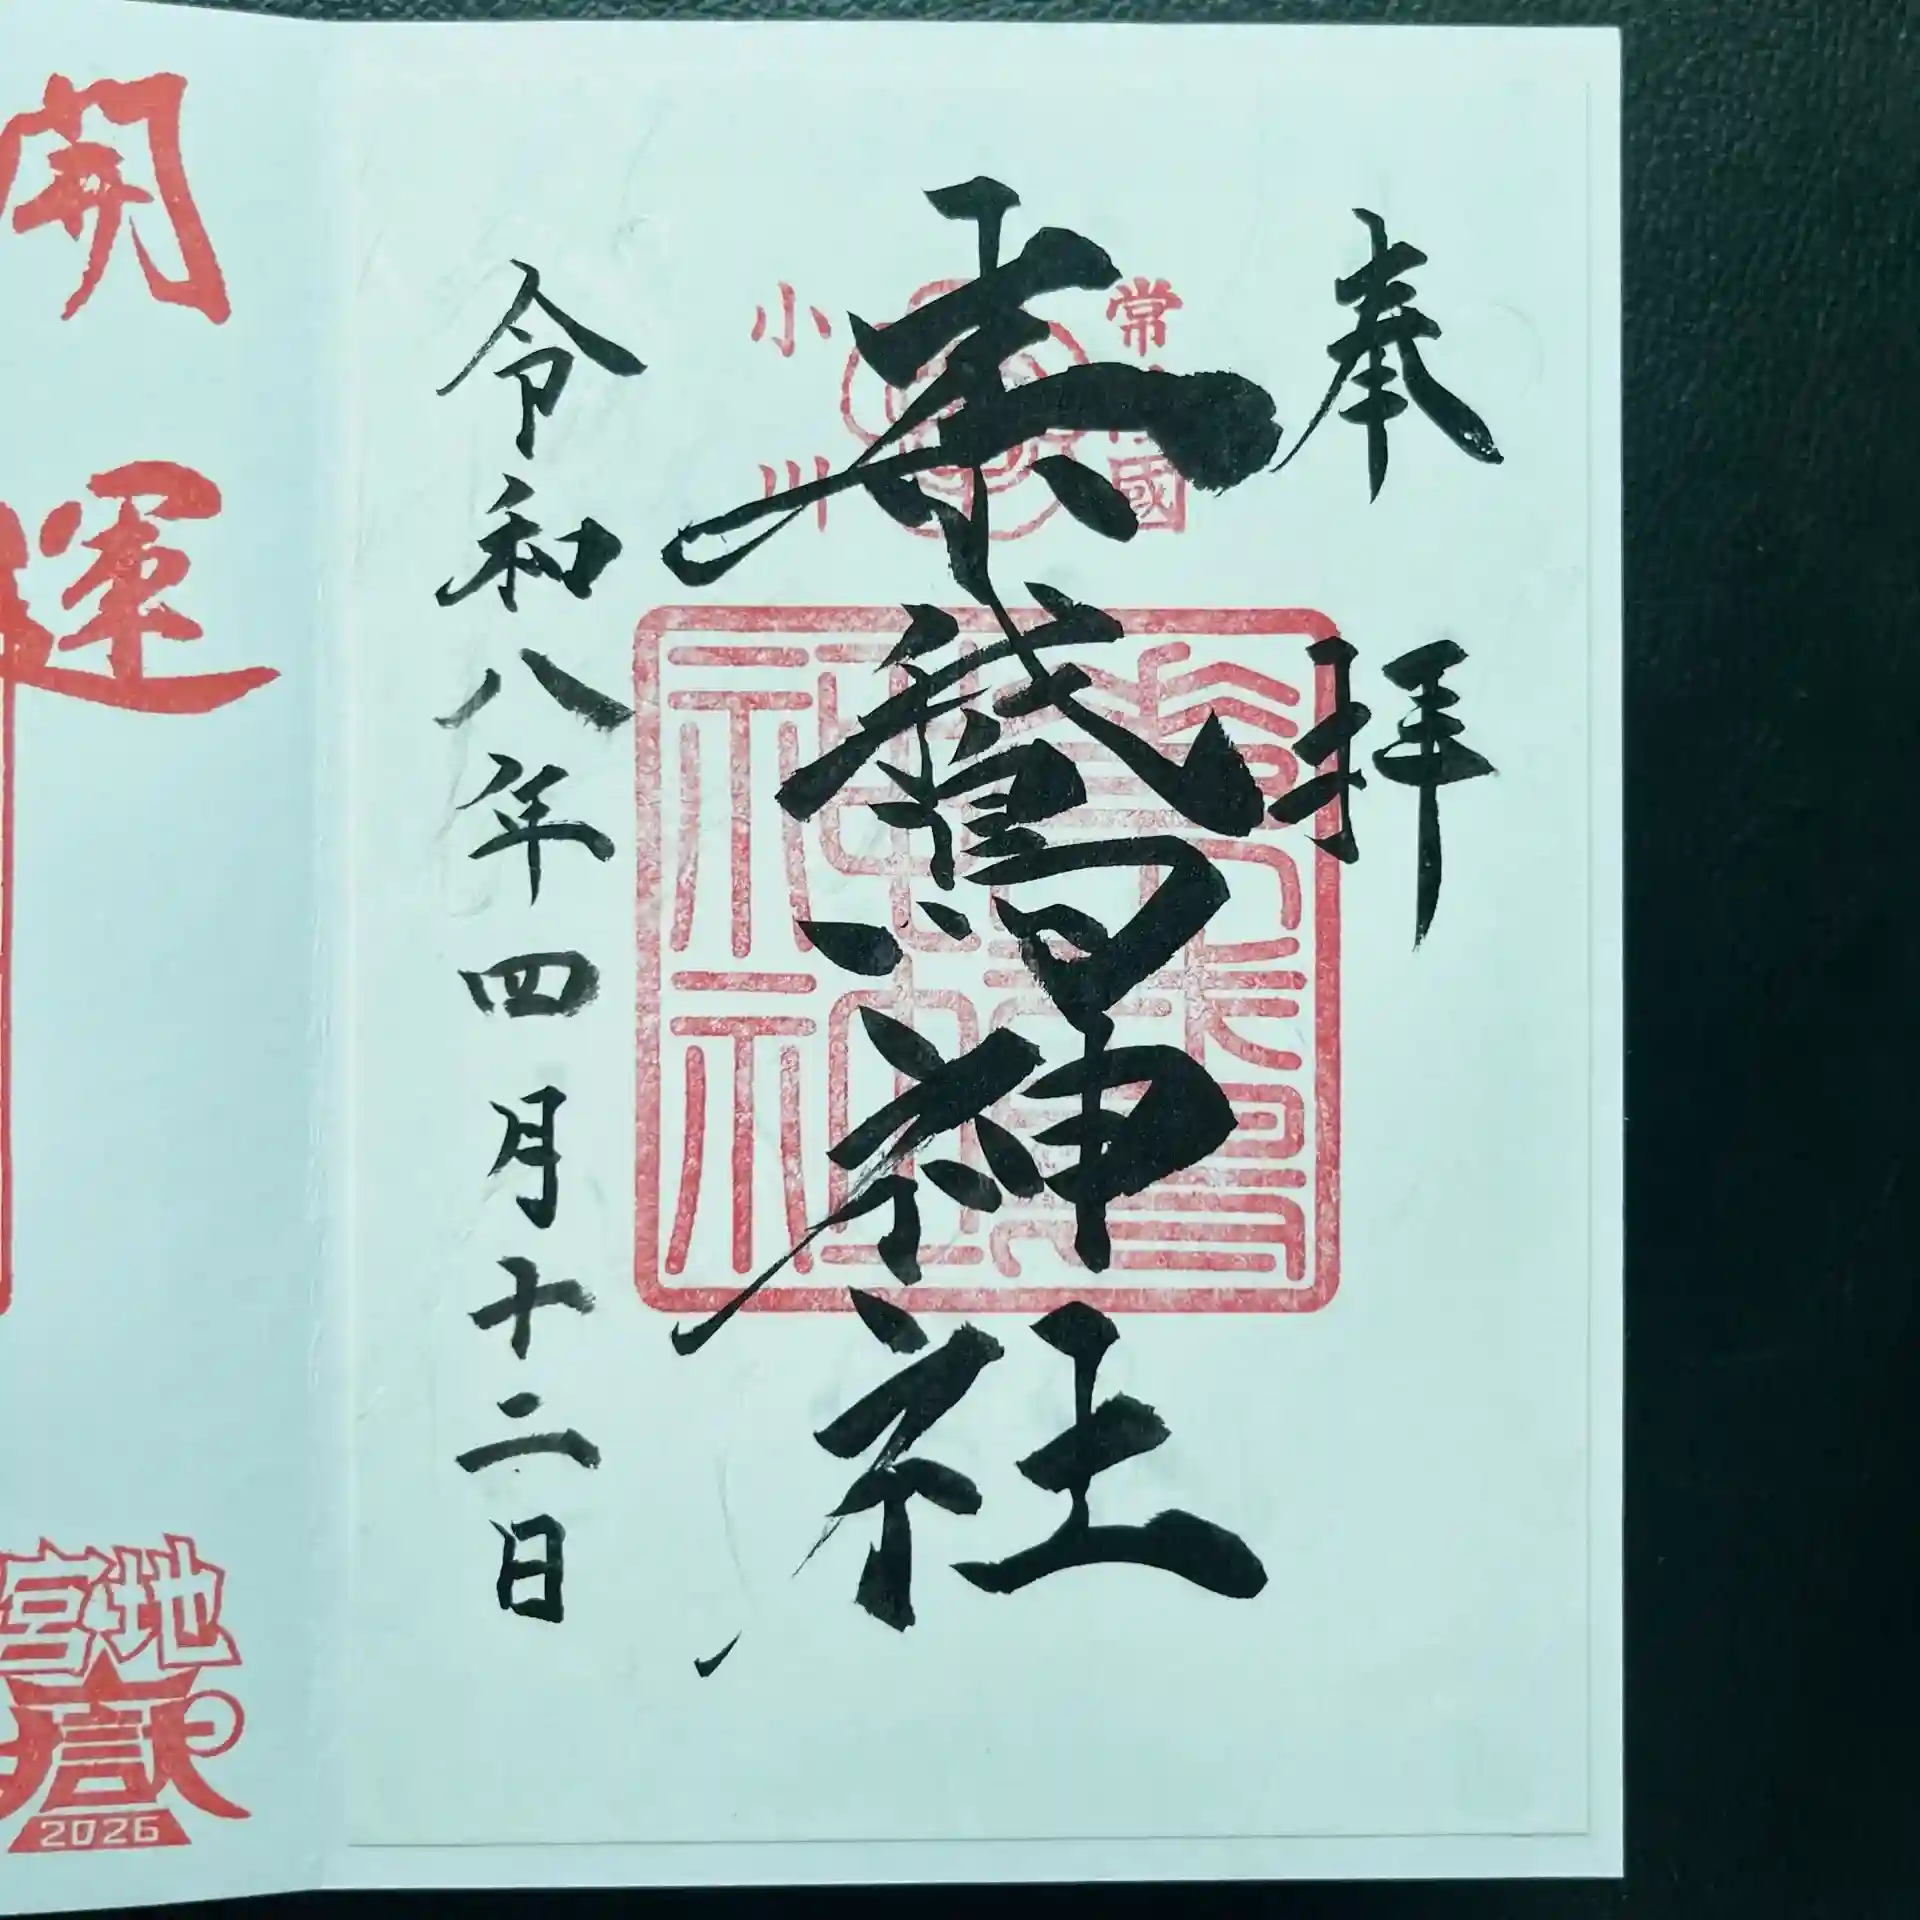 奉拝
常 國
素鵞神社
小川
令和八年四月十二日
開運
宮地
嶽
2026